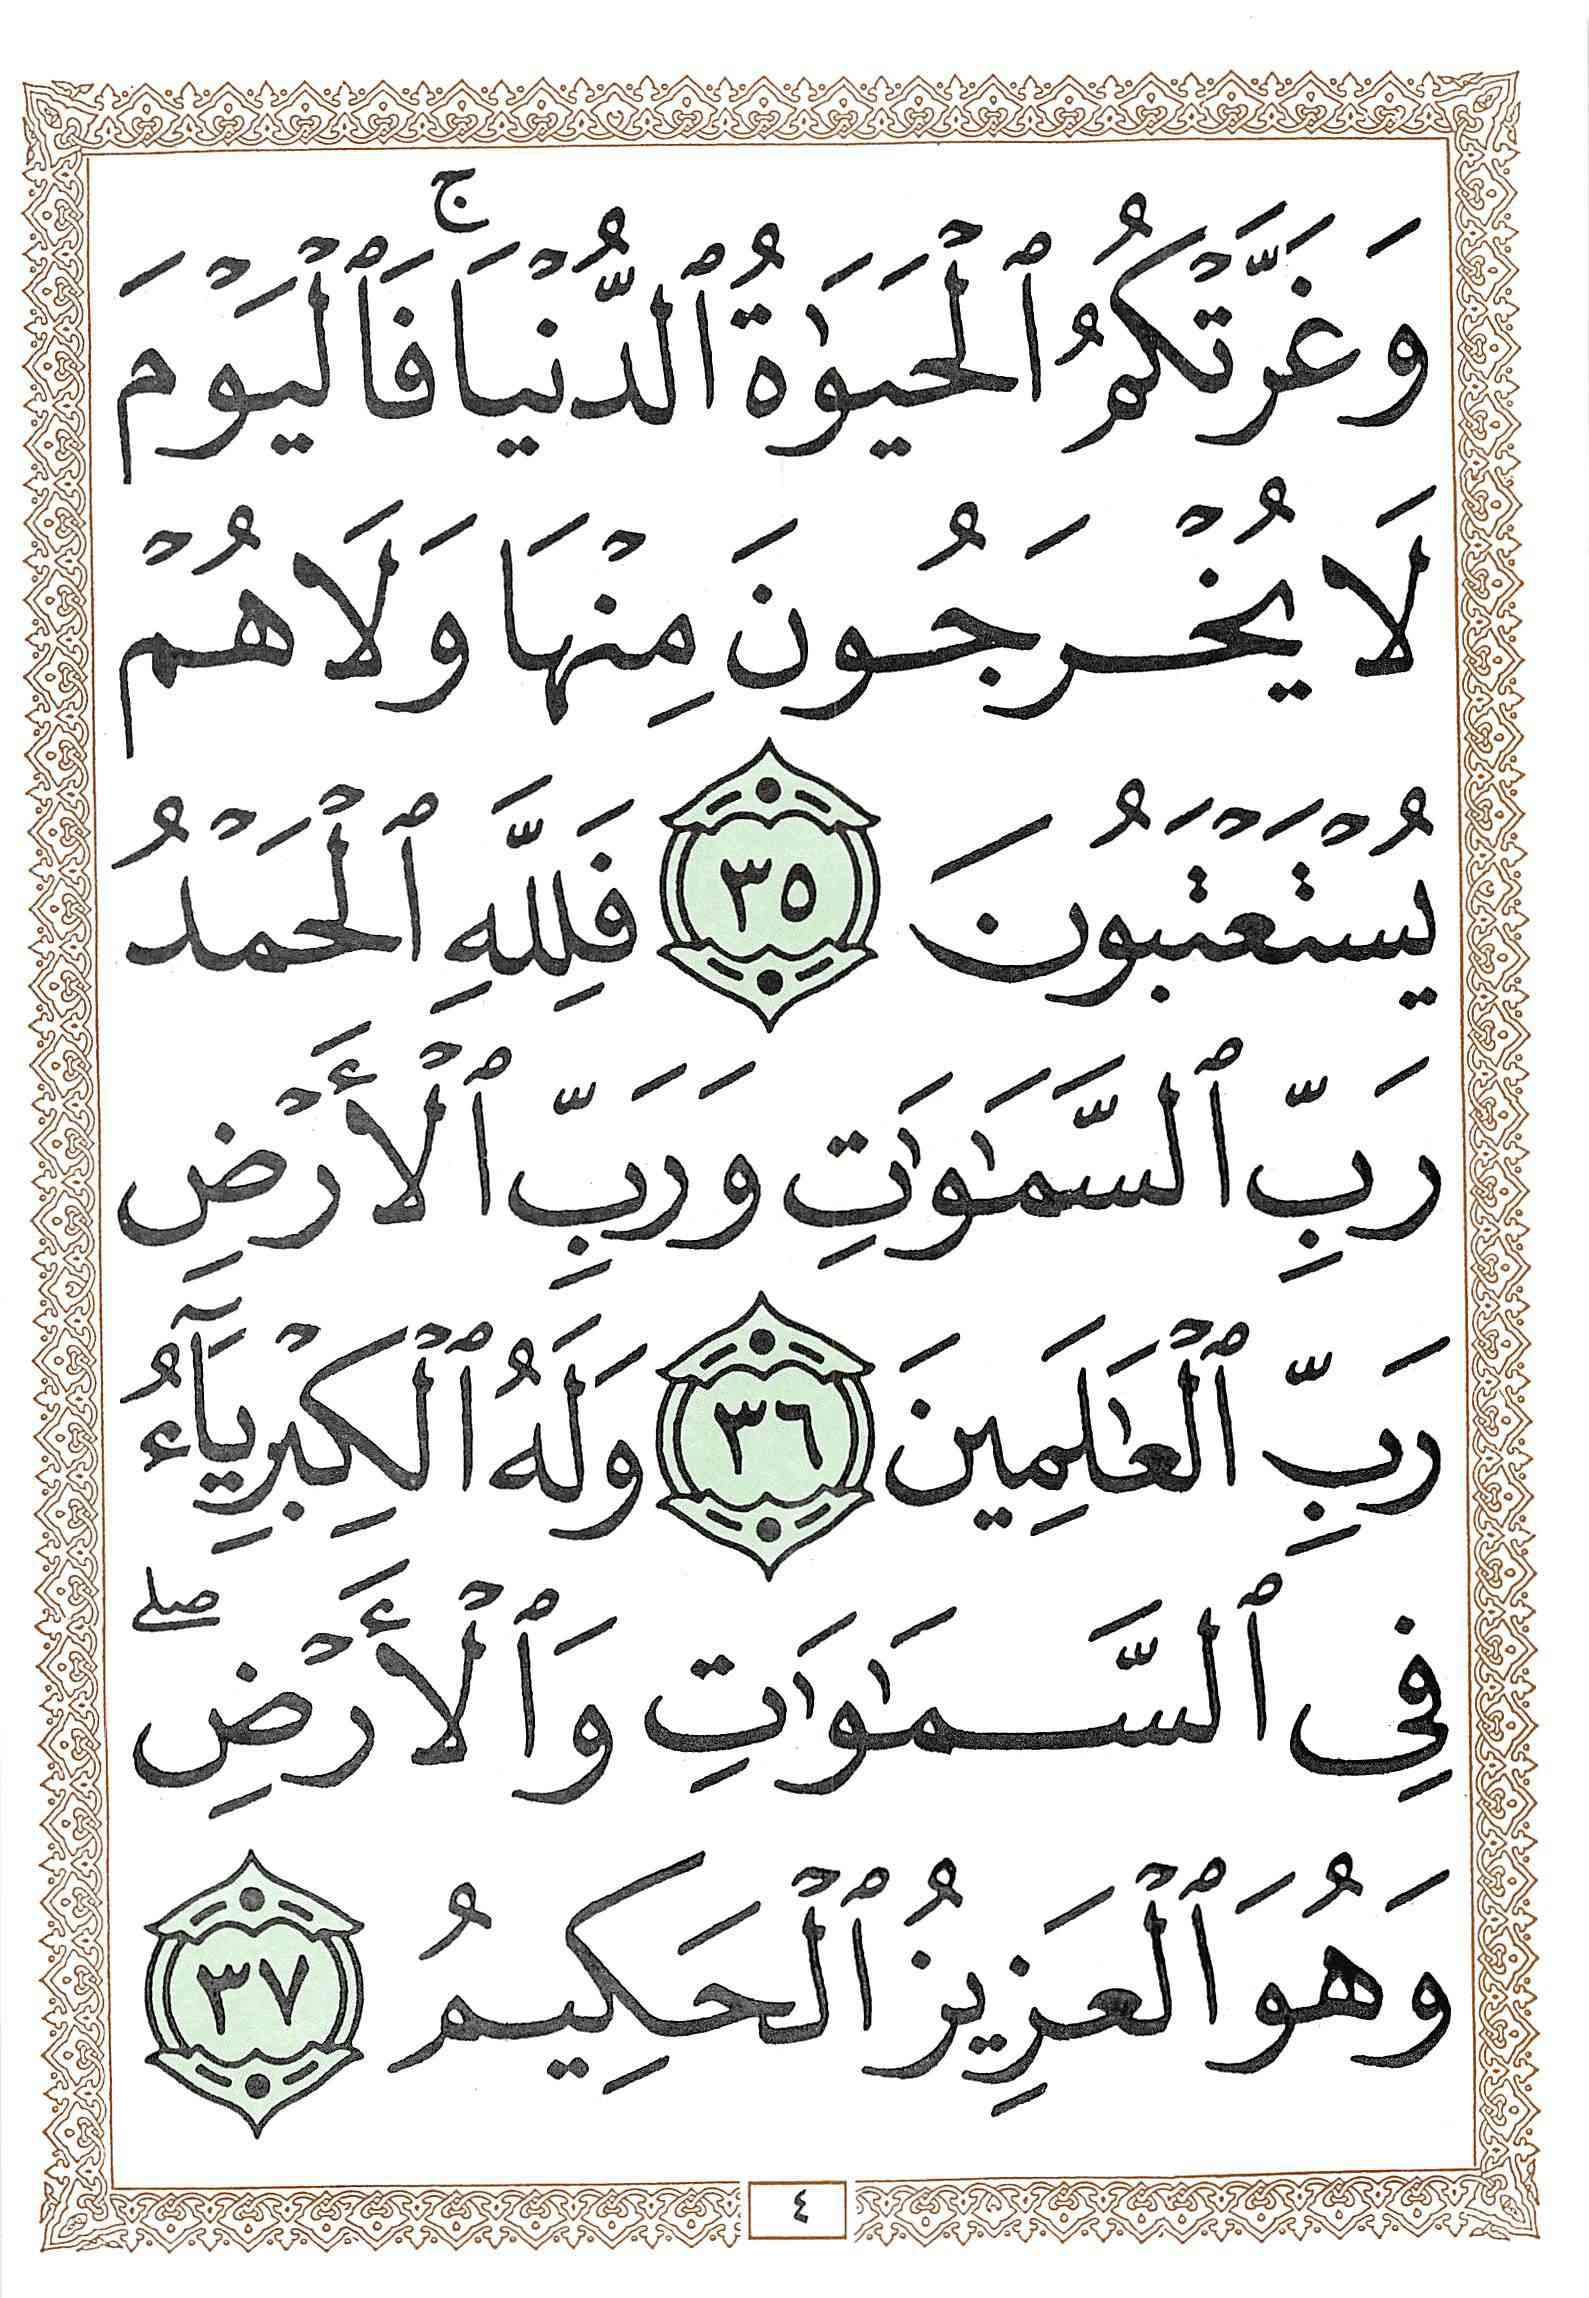 وَغَرَّتْكُمُ ٱلْحَيَوٰةُ ٱلدُّنْيَا ۚ فَٱلْيَوْمَ
لَا يُخْرَجُونَ مِنْهَا وَلَا هُمْ
يُسْتَعْتَبُونَ ٣٥ فَلِلَّهِ ٱلْحَمْدُ
رَبِّ ٱلسَّمَٰوَٰتِ وَرَبِّ ٱلْأَرْضِ
رَبِّ ٱلْعَٰلَمِينَ ٣٦ وَلَهُ ٱلْكِبْرِيَآءُ
فِى ٱلسَّمَٰوَٰتِ وَٱلْأَرْضِ ۖ
وَهُوَ ٱلْعَزِيزُ ٱلْحَكِيمُ ٣٧
٤